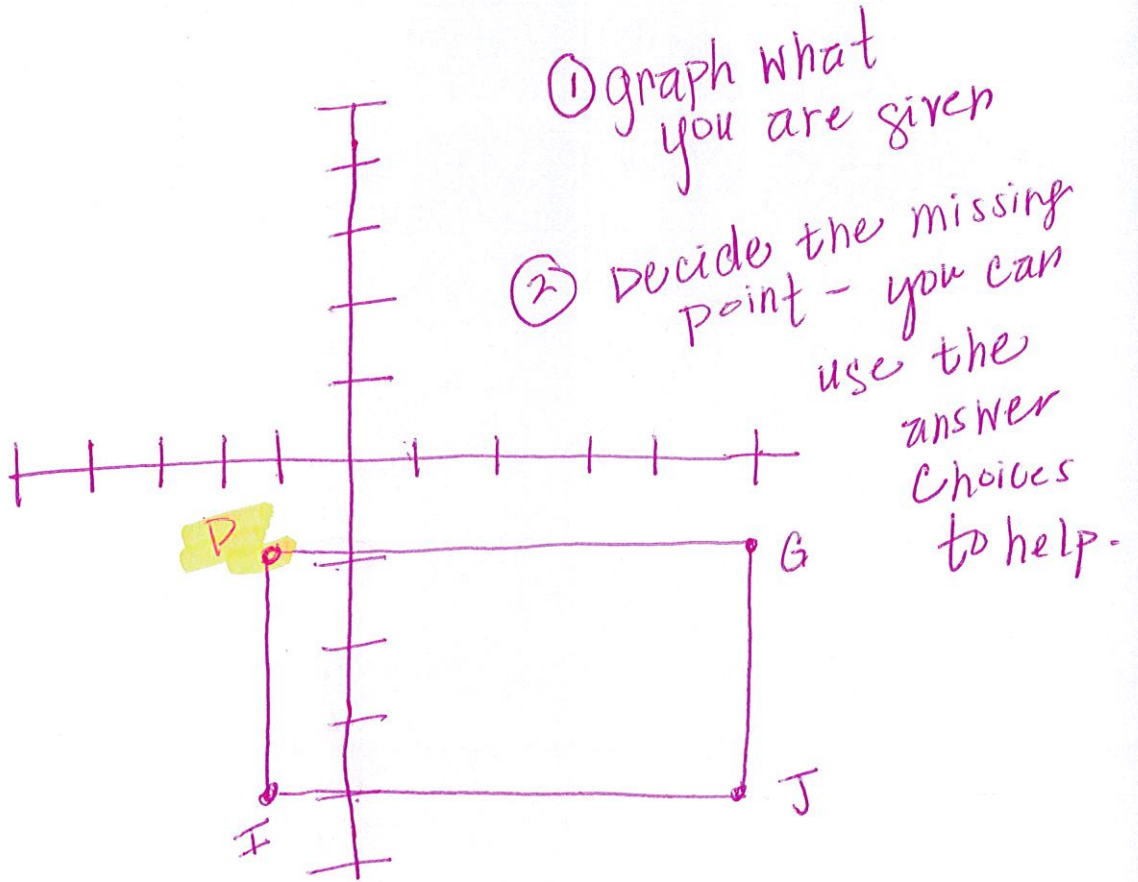 ① graph what
you are given
② Decide the missing
point - you can
use the
answer
choices
to help.
D
G
I
J